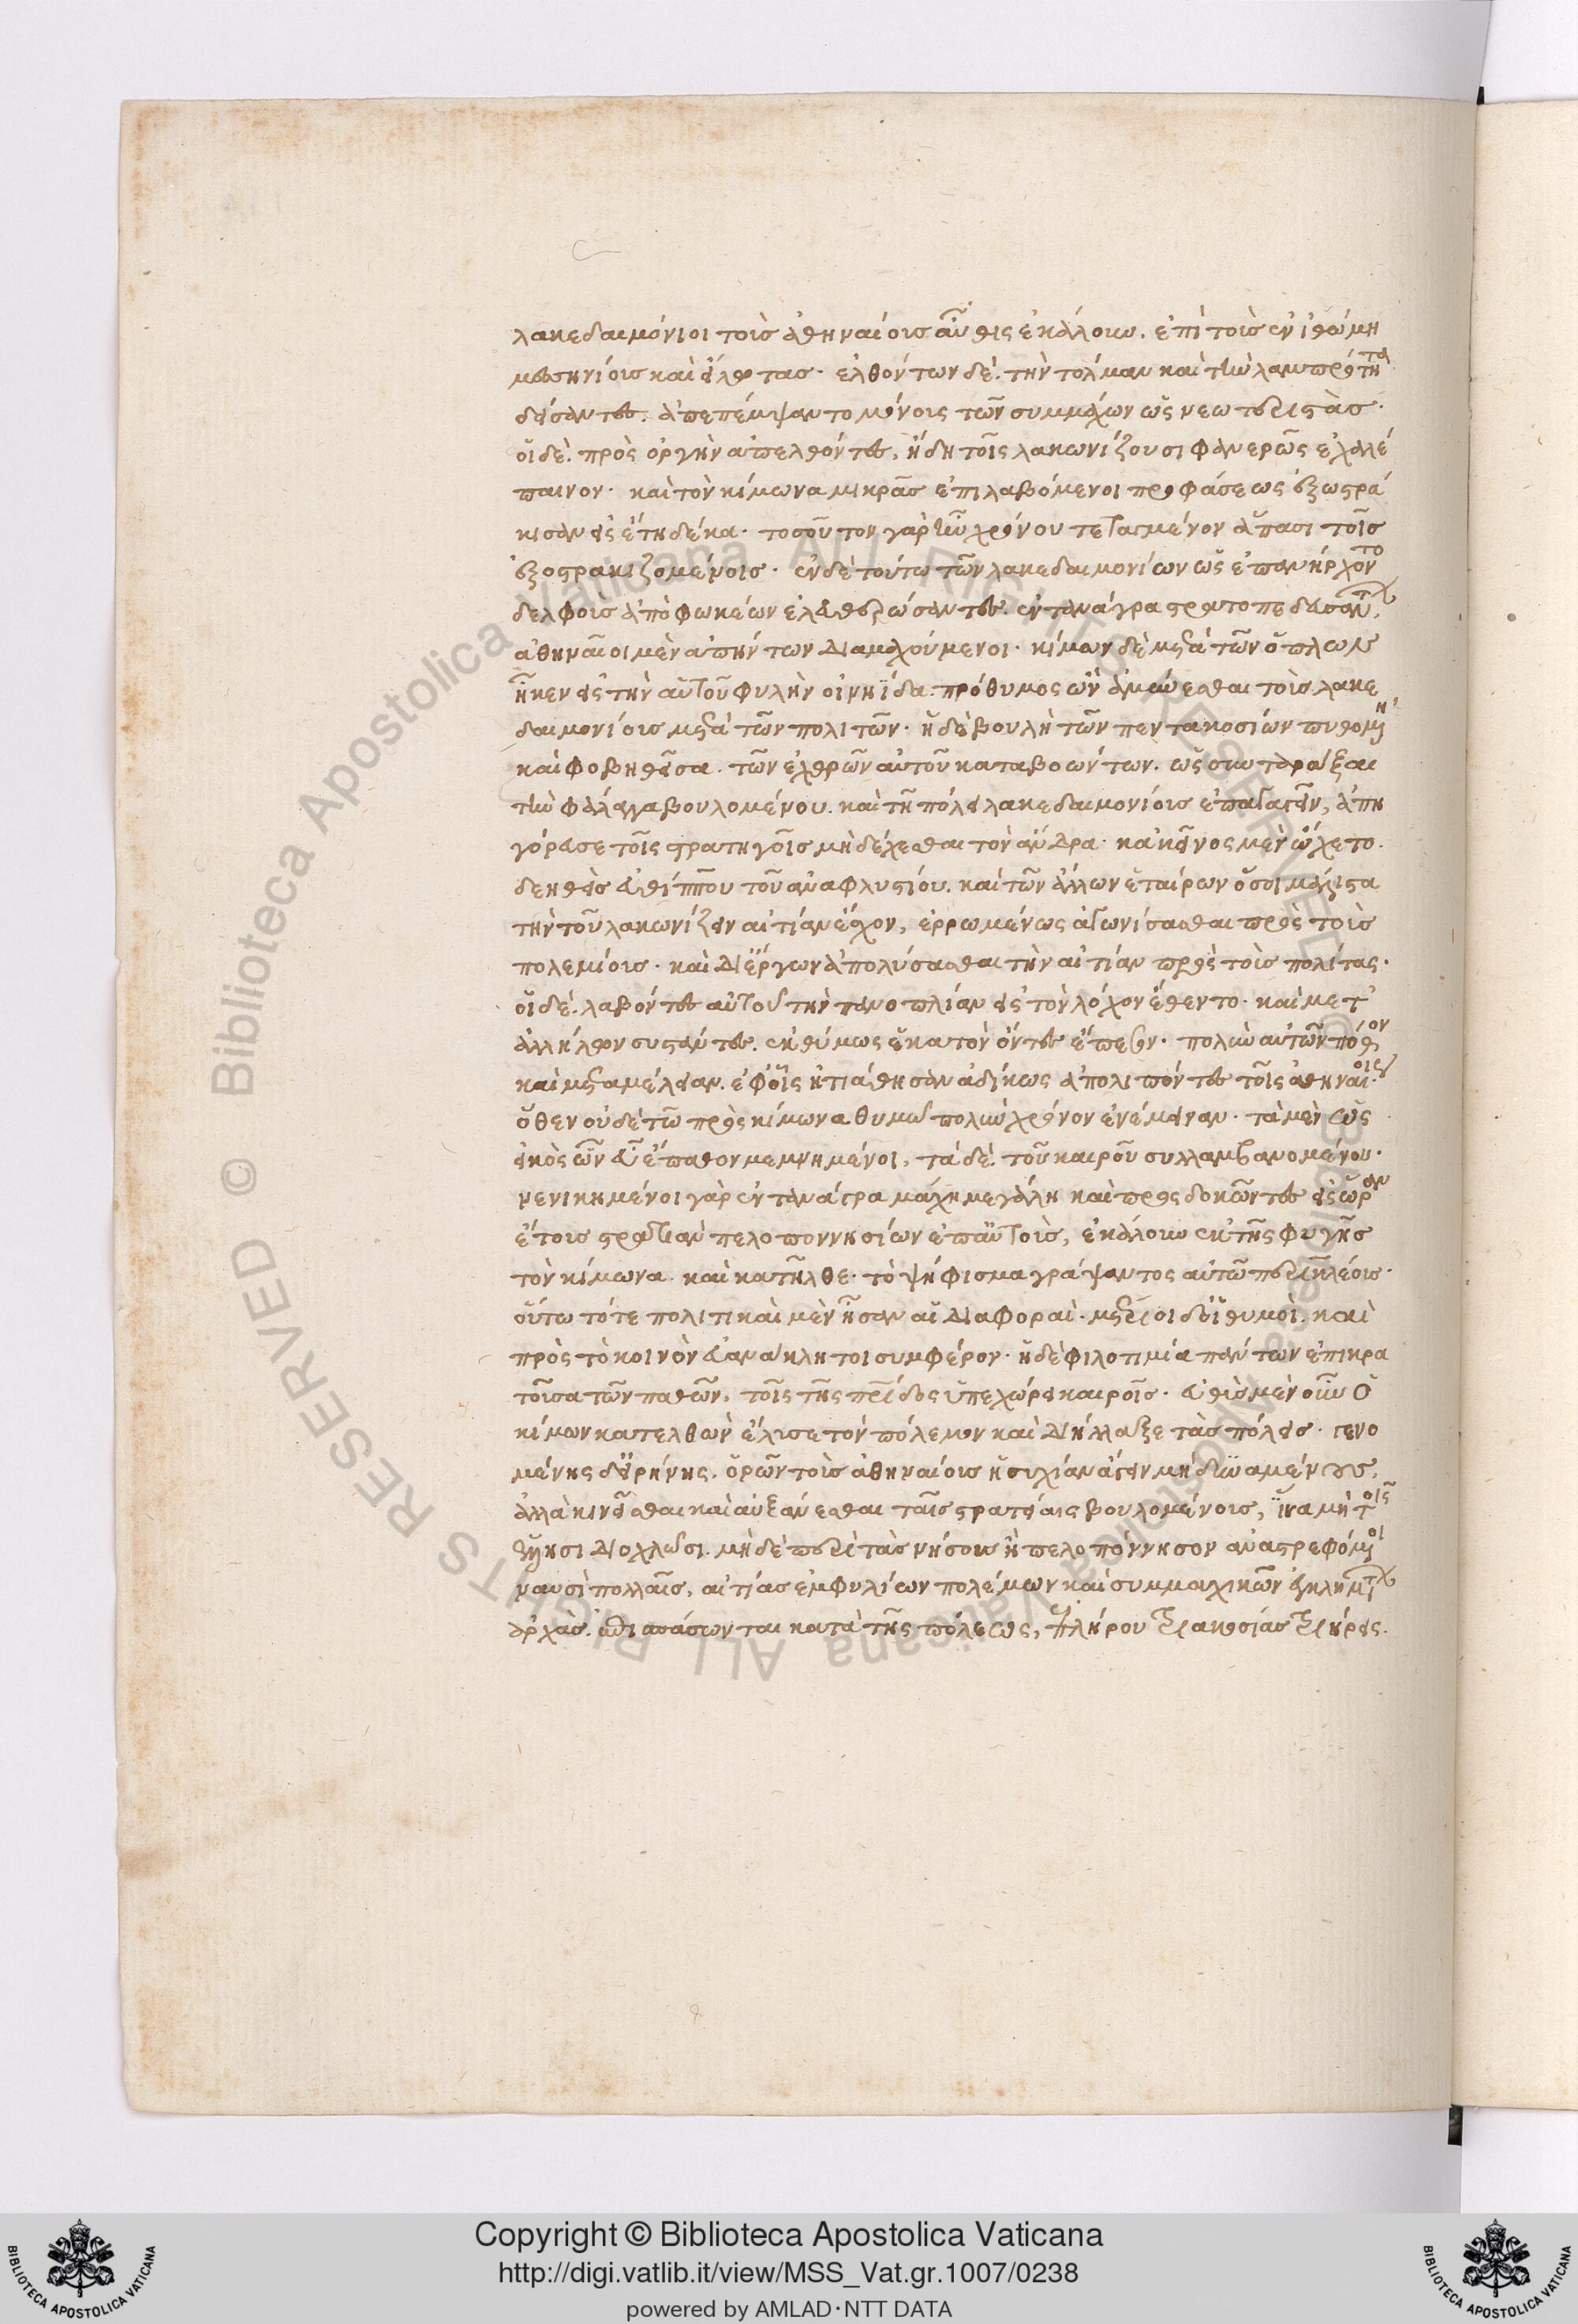 λακεδαιμόνιοι τοὺς ἀθηναίους αὖθις ἐκάλουν. ἐπὶ τοὺς ἐν ἰθώμη
μεσσηνίους καὶ εἵλωτας· ἐλθόντων δὲ. τὴν τόλμαν καὶ τὴν λαμπρότητα
δείσαντες. ἀπεπέμψαντο μόνους τῶν συμμάχων ὡς νεωτεριστὰς·
οἱ δὲ. πρὸς ὀργὴν ἀπελθόντες, ἤδη τοῖς λακωνίζουσι φανερῶς ἐχαλέ
παινον· καὶ τὸν κίμωνα μικρᾶς ἐπιλαβόμενοι προφάσεως ἐξωστρά
κισαν εἰς ἔτη δέκα· τοσοῦτον γὰρ ἦν χρόνου τεταγμένον ἅπασι τοῖς
ἐξοστρακιζομένοις· ἐν δὲ τούτω τῶν λακεδαιμονίων ὡς ἐπανήρχοντο
δελφοὺς ἀπὸ φωκέων ἐλευθερώσαντες. ἐν τανάγρα στρατοπεδευσάντων,
ἀθηναῖοι μὲν ἀπήντων διαμαχούμενοι· κίμων δὲ μετὰ τῶν ὅπλων
ἧκεν εἰς τὴν αὑτοῦ φυλὴν οἰνηΐδα. πρόθυμος ὢν ἀμύνεσθαι τοὺς λακε
δαιμονίους μετὰ τῶν πολιτῶν· ἡ δὲ βουλὴ τῶν πεντακοσίων πυθομένη
καὶ φοβηθεῖσα. τῶν ἐχθρῶν αὐτοῦ καταβοώντων. ὡς συνταράξαι
τὴν φάλαγγα βουλομένου. καὶ τῆ πόλει λακεδαιμονίους ἐπαγαγεῖν, ἀπη
γόρευσε τοῖς στρατηγοῖς μὴ δέχεσθαι τὸν ἄνδρα· κἀκεῖνος μὲν ὤχετο.
δεηθεὶς εὐθίππου τοῦ ἀναφλυστίου. καὶ τῶν ἄλλων ἑταίρων ὅσοι μάλιστα
τὴν τοῦ λακωνίζειν αἰτίαν ἔσχον, ἐρρωμένως ἀγωνίσασθαι πρὸς τοὺς
πολεμίους· καὶ δι᾽ ἔργων ἀπολύσασθαι τὴν αἰτίαν πρὸς τοὺς πολίτας·
οἱ δὲ. λαβόντες αὐτοῦ τὴν πανοπλίαν εἰς τὸν λόχον ἔθεντο· καὶ μετ᾽
ἀλλήλων συστάντες. ἐκθύμως ἑκατὸν ὄντες ἔπεσον· πολὺν αὐτῶν πόθον
καὶ μεταμέλειαν. ἐφ᾽ οἷς ἠτιάθησαν ἀδίκως ἀπολιπόντες τοῖς ἀθηναίοις·
ὅθεν οὐδὲ τῶ πρὸς κίμωνα θυμῶ πολὺν χρόνον ἐνέμειναν· τὰ μὲν ὡς
εἰκὸς ὧν εὖ ἔπαθον μεμνημένοι, τὰ δὲ. τοῦ καιροῦ συλλαμβανομένου·
νενικημένοι γὰρ ἐν τανάγρα μάχη μεγάλη καὶ προσδοκῶντες εἰς ὥραν
ἔτους στρατιὰν πελοποννησίων ἐπ᾽ αὐτοὺς, ἐκάλουν ἐκ τῆς φυγῆς
τὸν κίμωνα. καὶ κατῆλθε· τὸ ψήφισμα γράψαντος αὐτῶ περικλέους·
οὕτω τότε πολιτικαὶ μὲν ἦσαν αἱ διαφοραὶ· μέτριοι δὲ οἱ θυμοὶ. καὶ
πρὸς τὸ κοινὸν εὐανάκλητοι συμφέρον· ἡ δὲ φιλοτιμία πάντων ἐπικρα
τοῦσα τῶν παθῶν, τοῖς τῆς πατρίδος ὑπεχώρει καιροῖς· εὐθὺς μὲν οὖν ὁ
κίμων κατελθὼν ἔλυσε τὸν πόλεμον καὶ διήλλαξε τὰς πόλεις· γενο
μένης δ᾽ εἰρήνης. ὁρῶν τοὺς ἀθηναίους ἡσυχίαν ἄγειν μὴ δυναμένους,
ἀλλὰ κινεῖσθαι καὶ αὐξάνεσθαι ταῖς στρατείαις βουλομένους, ἵνα μὴ τοῖς
ἕλλησι διοχλῶσι. μὴ δὲ περὶ τὰς νήσους ἢ πελοπόννησον ἀναστρεφόμενοι
ναυσὶ πολλαῖς, αἰτίας ἐμφυλίων πολέμων καὶ συμμαχικῶν ἐγκλημάτων
ἀρχὰς. ἐπισπάσωνται κατὰ τῆς πόλεως, ἐπλήρου τριακοσίας τριήρεις.